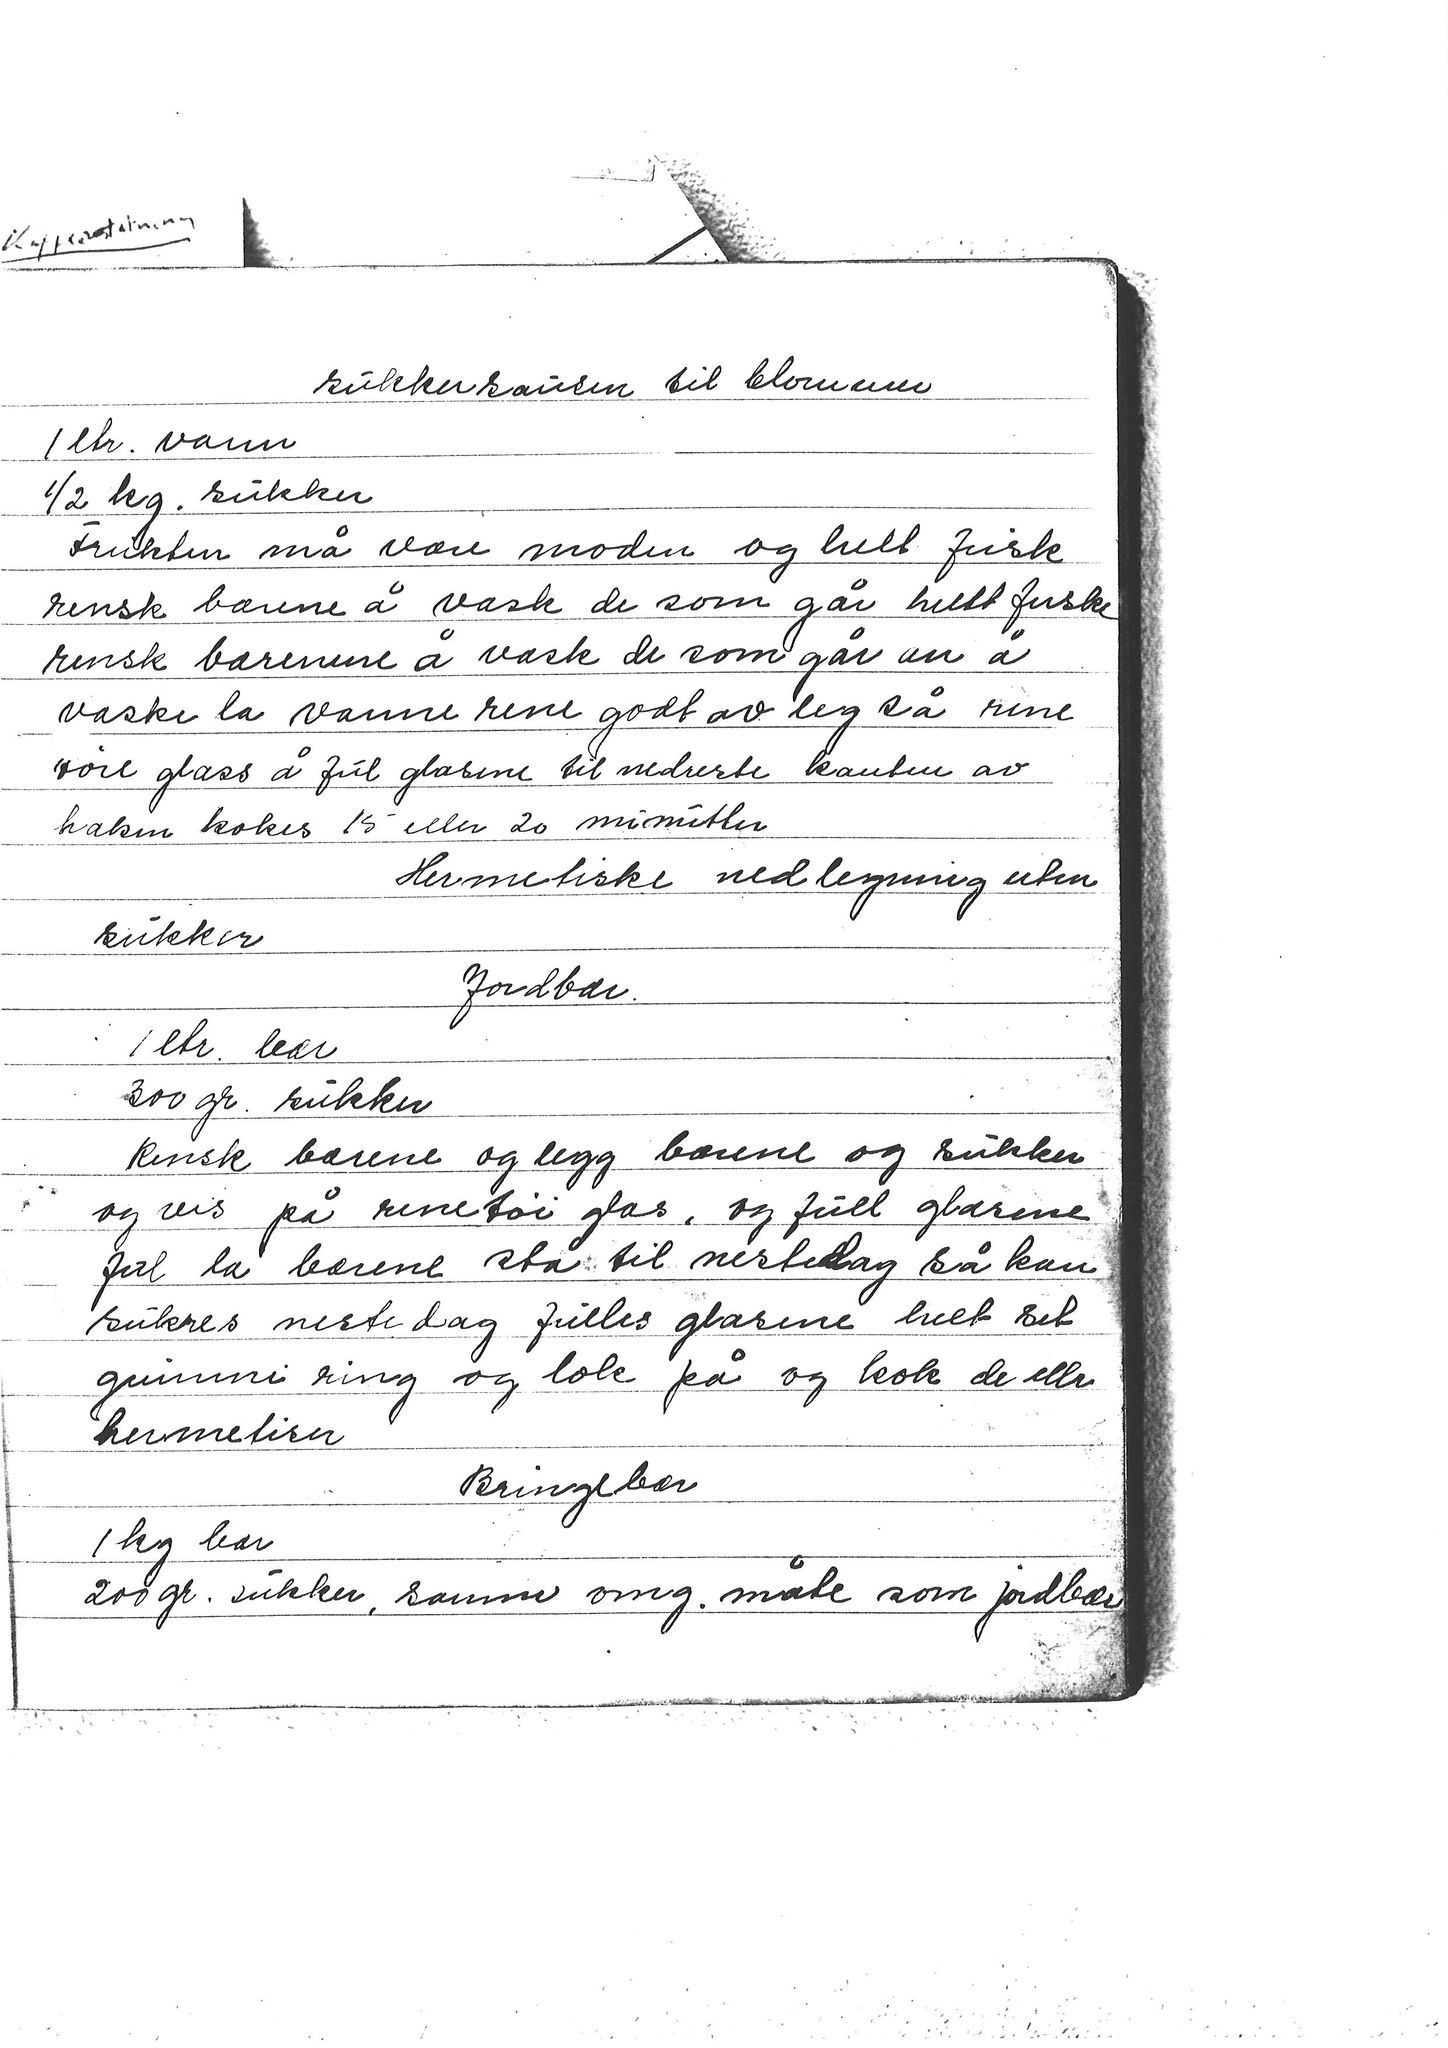 Kaffeerstatning
sukkersausen til blommer
1 ltr. vann
1/2 kg. sukker
Frukten må være moden og helt frisk
rensk bærene å vask de som går helt friske
rensk bærenene å vask de som går an å
vaske la vanne rene godt av leg så rine
glass å ful glasene til nedreste kanten av
haken kokes 15 eller 20 minutter
Hermetiske nedlegning uten
sukker
Jordbær.
1 ltr. bær
300 gr. sukker
Rensk bærene og legg bærene og sukker
og vis på rene tøi glas, og full glasene
ful la bærene stå til nestedag så kan
sukres neste dag fulles glasene helt set
gummi ring og lok på og kok de eller
hermetiser
Bringebær
1 kg bær
200 gr. sukker, samme omg. måte som jordbær